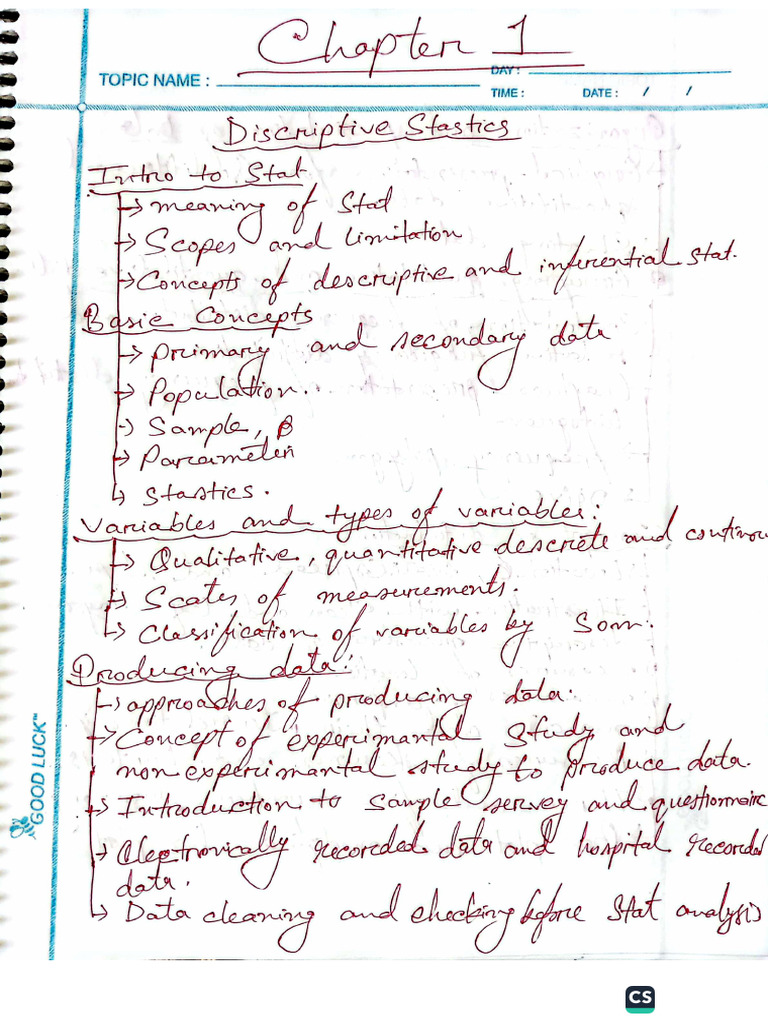 Chapter 1
TOPIC NAME :
DAY :
TIME :
DATE : / /
Discriptive Stastics
Intro to Stat
→ meaning of Stat
→ Scopes and limitation
→ Concepts of descriptive and inferential stat.
Basic Concepts
→ Primary and secondary data
→ Population.
→ Sample,
→ Parameter
↳ Stastics.
Variables and types of variables:
→ Qualitative, quantitative descrete and continou
→ Scales of measurements.
↳ Classification of variables by
Producing data:
→ approaches of producing data.
→ Concept of experimantal study and
non experimantal study to produce data.
→ Introduction to sample servey and questionnaire
→ Electronically recorded data and hospital recorded
data.
↳ Data cleaning and checking before stat analysis
GOOD LUCK™
CS